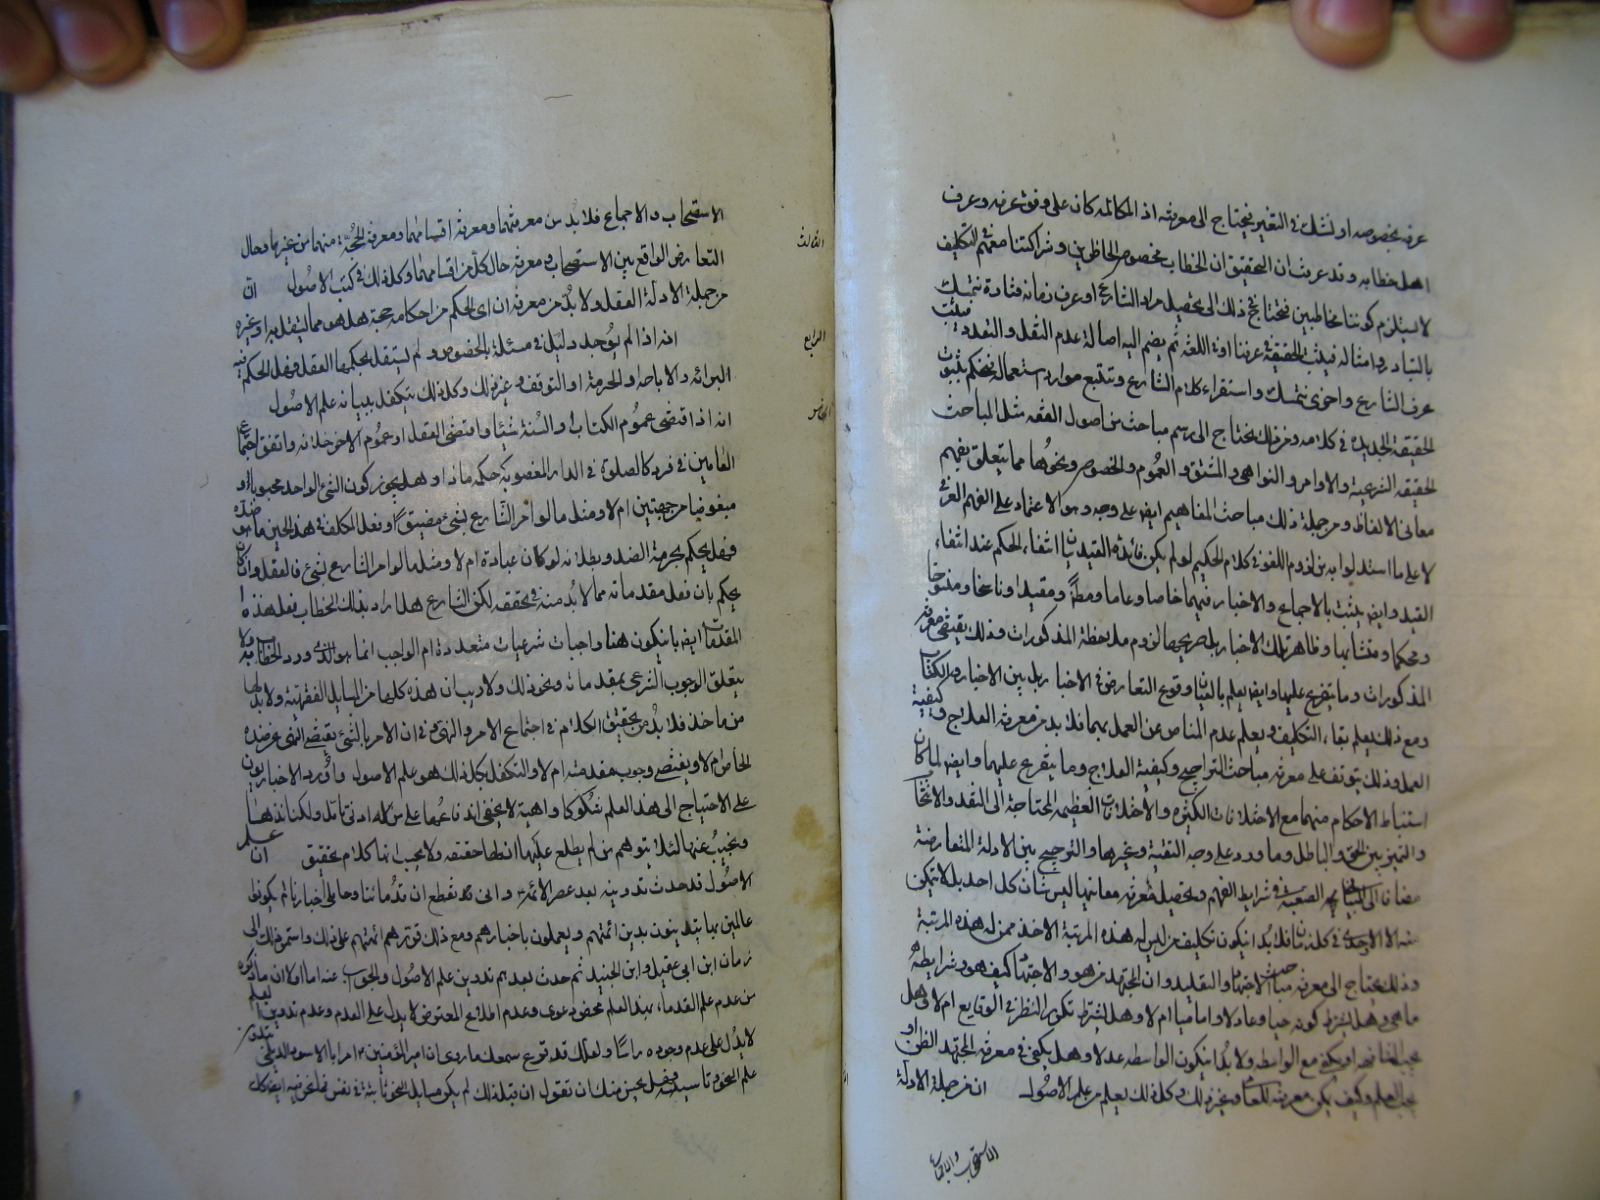 عرفه بخصوصه او نشك في التغير فيحتاج الى معرفته اذ المكالمه كان على وفق عرفه وعرف
اهل خطابه وقد عرفت ان التحقيق ان الخطاب مخصوص بالحاضرين وشراكتنا معهم في التكليف
لا يستلزم كوننا مخاطبين فنحتاج في ذلك الى تحصيل مراد الشارع او عرف زمانه فتارة نتمسك
بالتبادر وامثاله فيثبت الحقيقة في عرفنا او في اللغة ثم يضم اليه اصالة عدم النقل والتعدد فيثبت
عرف الشارع واخرى نتمسك باستقراء كلام الشارع ونتتبع موارد استعماله فنحكم بثبوت
الحقيقة الجديدة في كلامه وغير ذلك فيحتاج الى رسم مباحث من اصول الفقه مثل المباحث
الحقيقة الشرعية والاوامر والنواهي والمشتق والعموم والخصوص ونحوها مما يتعلق بفهم
معاني الالفاظ ومن جملة ذلك مباحث المفاهيم ايض على وجه وهو الاعتماد على الفهم العرفي
لا على ما استدلوا به من لزوم اللغو في كلام الحكيم لو لم يكن فائدة القيد انتفاء الحكم عند انتفاء
القيد وايض يثبت بالاجماع والاخبار ان فيهما خاصا وعاما ومطلقا ومقيدا وناسخا ومنسوخا
ومحكما ومتشابها وظاهر تلك الاخبار بل صريحها لزوم ملاحظة المذكورات وذلك يقتضي معرفة
المذكورات وما يتفرع عليها وايض يعلم بالعيان وقوع التعارض في الاخبار بل بين الاخبار والكتاب
ومع ذلك يعلم بقاء التكليف ويعلم عدم المناص عن العمل بهما فلا بد من معرفة العلاج وكيفية
العمل وذلك يتوقف على معرفة مباحث التراجيح وكيفية العلاج وما يتفرع عليهما وايض لما كان
استنباط الاحكام منهما مع الاختلافات الكثيرة والاختلالات العظيمة المحتاجة الى النقد والانتخاب
والتميز بين الحق والباطل وما ورد على وجه التقية وغيرها والترجيح بين الادلة المتعارضة
مضافا الى الصعبة في شرايط الفهم وتحصيل معرفة معانيها ليس شان كل احد بل لا يتمكن
منه الا الاوحدي في كل زمان فلا بد ان يكون تكليف من ليس له هذه المرتبة الاخذ ممن له هذه المرتبة
وذلك يحتاج الى معرفة مباحث الاجتهاد والتقليد وان المجتهد من هو والاجتهاد كيف هو وشرايطه
ما هي وهل يشترط كونه حيا وعادلا واماميا ام لا وهل يشترط تكرير النظر في الوقايع ام لا وهل
يجب المشافهة او يكفي مع الواسطة ولا بد ان يكون الواسطة عدلا وهل يكفي في معرفة المجتهد الظن او
يجب العلم وكيف يمكن معرفته للعامي وغير ذلك وكل ذلك يعلم من علم الاصول ان من جملة الادلة
الاستصحاب والاجماع
الاستصحاب والاجماع فلا بد من معرفتهما ومعرفة اقسامهما ومعرفة الحجة منهما من غيرها وحال
التعارض الواقع بين الاستصحاب ومعرفة حال كل من اقسامهما وكل ذلك في كتب الاصول ان
الثالث
من جملة الادلة العقل ولا بد من معرفة ان اي الحكم من احكامه حجة هل هو مما يستقل به او غيره
الرابع
انه اذا لم يوجد دليل في مسئلة بالخصوص ولم يستقل بحكمها العقل فهل الحكم فيه
البرائة والاباحة او الحرمة او التوقف وغير ذلك وكل ذلك يتكفل ببيانه علم الاصول
الخامس
انه اذا اقتضى عموم الكتاب او السنة شيئا واقتضى العقل او عموم الاخر خلافه واتفق اجتماع
العامين في فرد كالصلوة في الدار المغصوبة حكمه ماذا وهل يجوز كون الشئ الواحد محبوبا و
مبغوضا من جهتين ام لا ومثل ما لو امر الشارع بشئ مضيق او فعل المكلف في هذا الحين ما هو ضده
فهل يحكم بحرمة الضد وبطلانه لو كان عبادة ام لا ومثل ما لو امر الشارع بشئ فالعقل وان كان
يحكم بان فعل مقدماته مما لا بد منه في تحققه لكن الشارع هل اراد بذلك الخطاب فعل هذه
المقدمات ايض بان يكون هنا واجبات شرعيات متعددة ام الواجب انما هو الذي ورد الخطاب به ولا
يتعلق الوجوب الشرعي بمقدماته ونحو ذلك ولا ريب ان هذه كلها من المسايل الفقهية ولا بد لها
من ماخذ فلا بد من تحقيق الكلام في اجتماع الامر والنهي وفي ان الامر بالشئ يقتضي النهي عن ضده
الخاص ام لا ويقتضي وجوب مقدمته ام لا والمتكفل بكل ذلك هو علم الاصول واورد الاخباريون
على الاحتياج الى هذا العلم شكوكا واهية لا يخفى اندفاعها على من له ادنى تامل ولكنا نذكرها
ونجيب عنها لئلا يتوهم من لم يطلع عليها ان لها حقيقة ولا يحسب انها كلام تحقيق ان علم
الاصول قد حدث تدوينه بعد عصر الائمة وانى نقطع ان قدمائنا وحاملي اخبارنا لم يكونوا
عالمين بها بل يتدينون بدين ائمتهم ويعملون باخبارهم ومع ذلك قررهم ائمتهم على ذلك واستمر ذلك الى
زمان ابن ابي عقيل وابن الجنيد ثم حدث بعدهم تدوين علم الاصول والجواب عنه اما اولا ان ما ذكره
من عدم علم القدماء بهذا العلم محض دعوى وعدم اطلاع المعترض لا يدل على العدم وعدم تدوين العلم
لا يدل على عدم وجوده راسا ولعلك قد قرع سمعك ما روى ان امير المؤمنين امر ابا الاسود الدئلي بتدوين
علم النحو وتاسيسه فهل يحسن منك ان تقول ان قبل ذلك لم يكن مسايل النحو ثابتة في نفس فما نحن فيه ايض كذلك